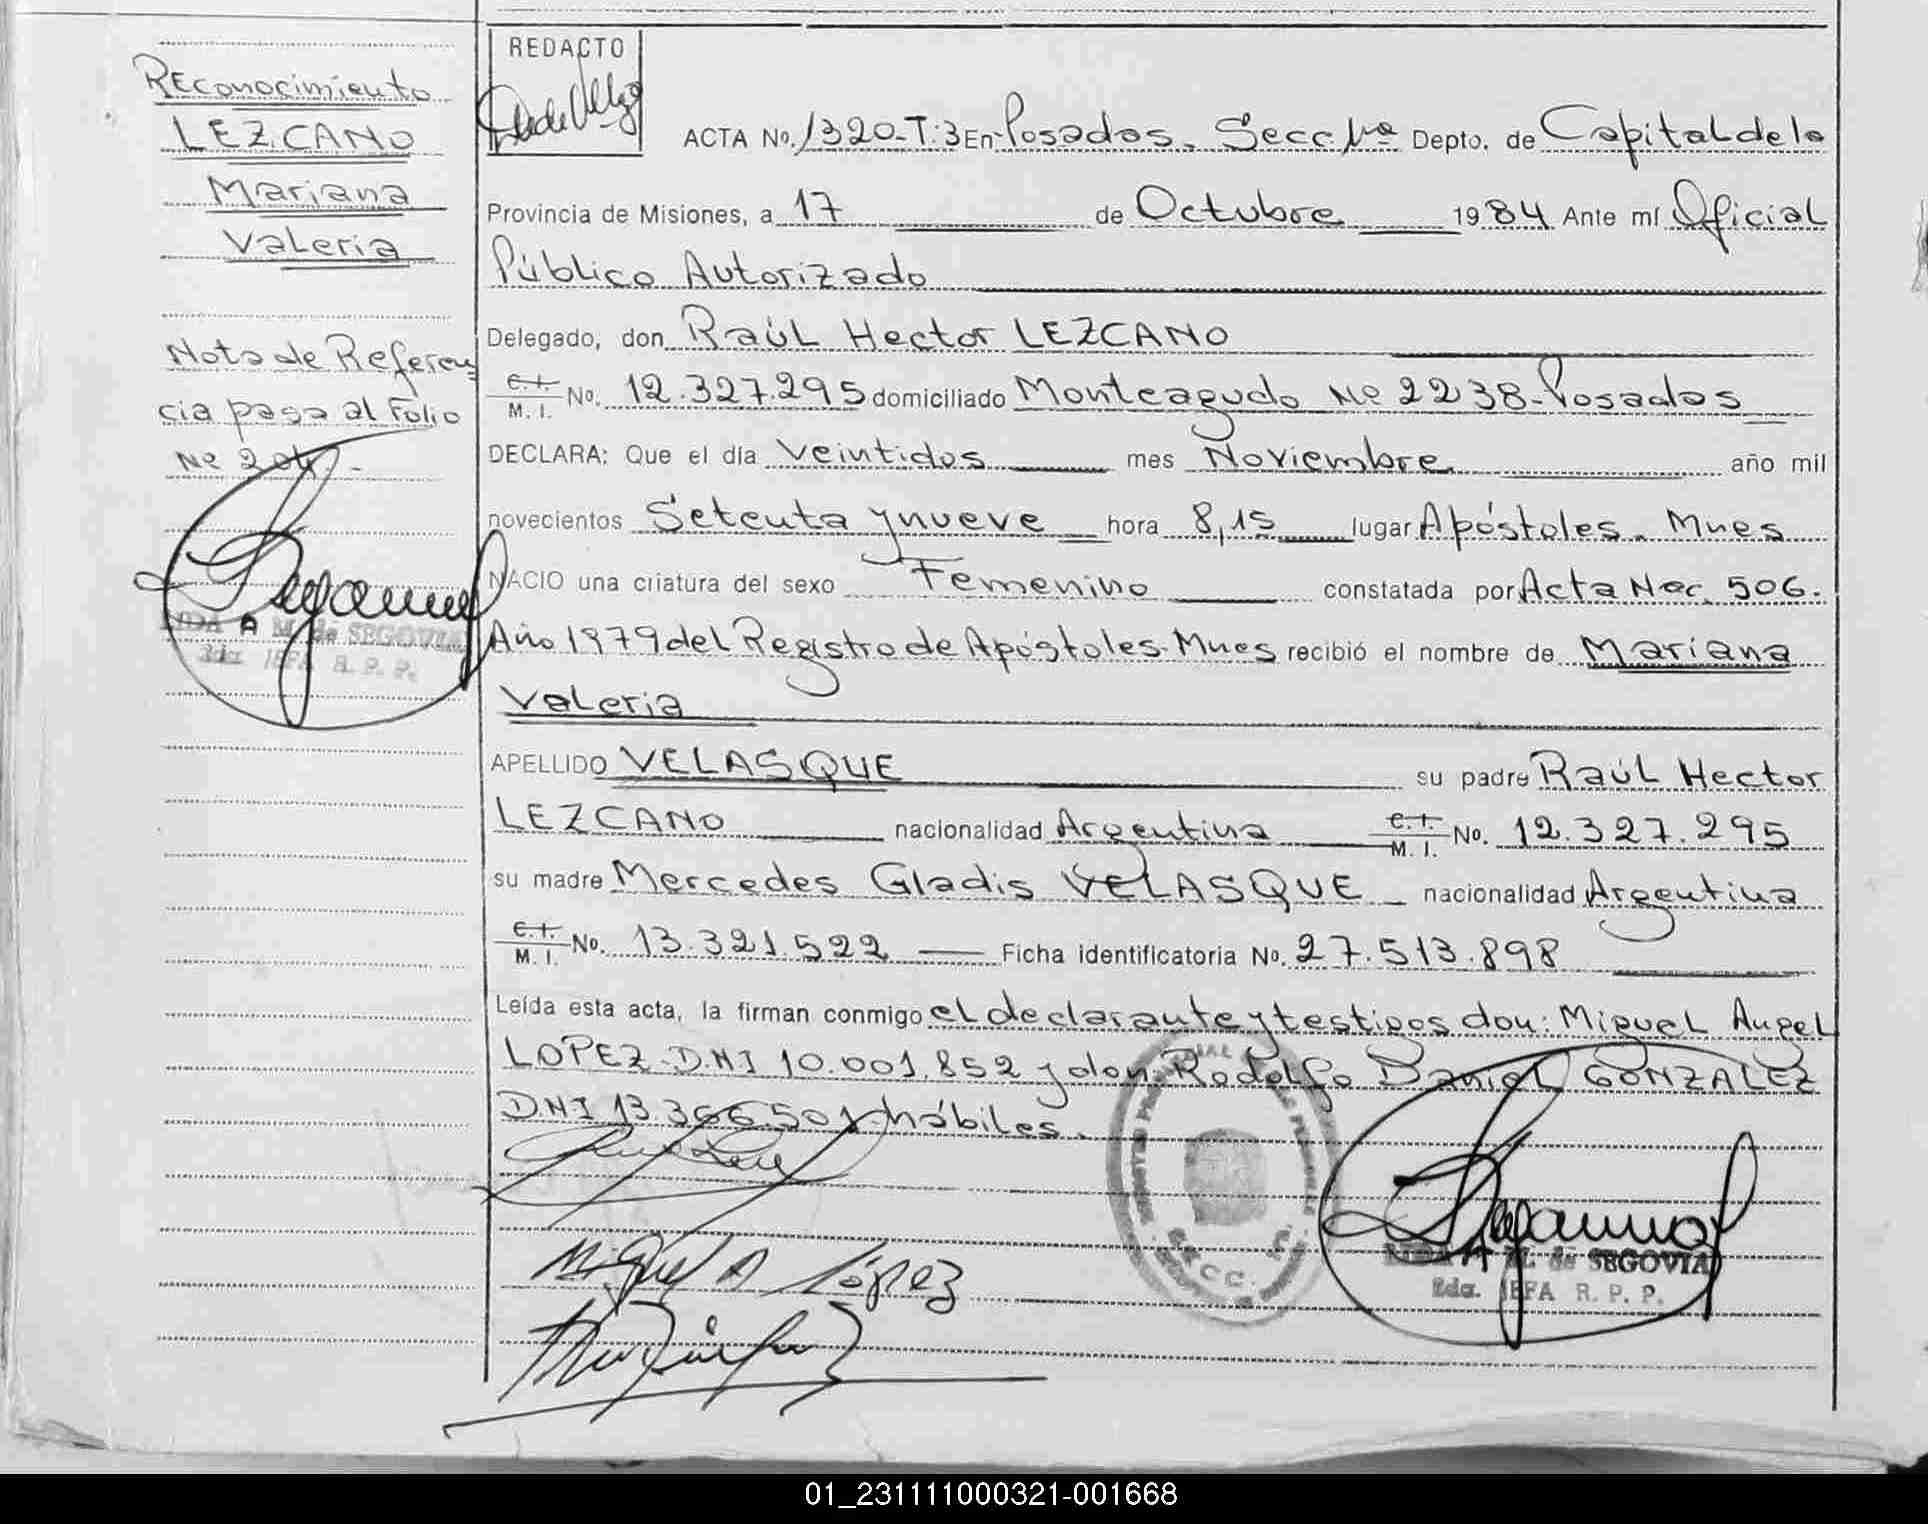 Reconocimiento
LEZCANO
Mariana
Valeria
Nota de Referen
cia pasa al Folio
Nº 204.-
LIDA A M. de SEGOVIA
2da. JEFA R. P. P.
REDACTO
ACTA No. 1320-T:3 En Posadas. Secc. 1ra Depto. de Capital de la
Provincia de Misiones, a 17 de Octubre 1984 Ante mí Oficial
Público Autorizado
Delegado, don Raúl Hector LEZCANO
C.I. M. I. No. 12.327.295 domiciliado Monteagudo Nº 2238-Posadas
DECLARA: Que el día veintidos mes Noviembre año mil
novecientos Setenta y nueve hora 8,15 lugar Apóstoles. Mnes
NACIO una criatura del sexo Femenino constatada por Acta Nac. 506.
Año 1979 del Registro de Apóstoles-Mnes recibió el nombre de Mariana
Valeria
APELLIDO VELASQUE su padre Raúl Hector
LEZCANO nacionalidad Argentina C.I. M. I. No. 12.327.295
su madre Mercedes Gladis VELASQUE nacionalidad Argentina
C.I. M. I. No. 13.321.522 Ficha identificatoria No. 27.513.898
Leída esta acta, la firman conmigo el declarante y testigos don: Miguel Angel
LOPEZ-D.N.I 10.001.852 y don: Rodolfo Daniel GONZALEZ
D.N.I 13.366.501-hábiles.
Miguel A López
LIDA A M. de SEGOVIA
2da. JEFA R. P. P.
01_231111000321-001668